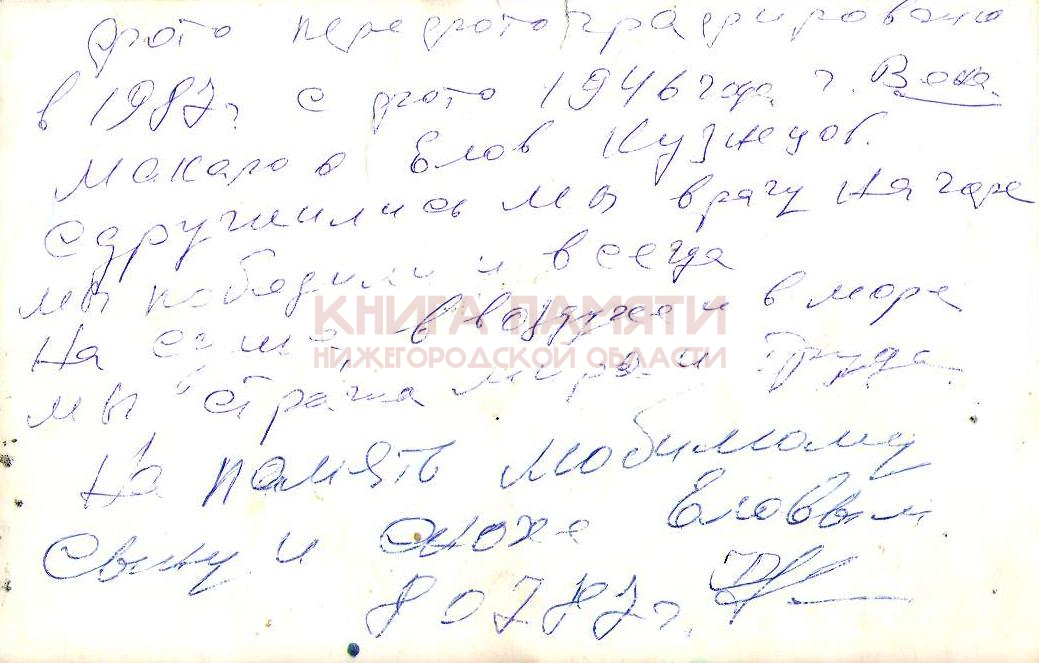 Фото перефотографировано
в 1987г. с фото 1946 года г. Вена.
Макаров Елов Кузнецов.
Сдружились мы врагу на горе
мы победили и всегда
КНИГА ПАМЯТИ
На суше, в воздухе и в море
НИЖЕГОРОДСКОЙ ОБЛАСТИ
мы стража мира и труда
На память любимому
сыну и снохе Еловым
8 07 87 г.